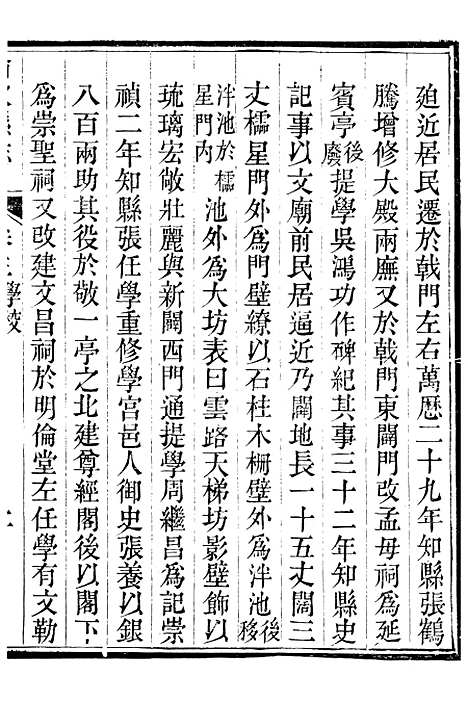 迫近居民遷於戟門左右萬歷二十九年知縣張鶴
騰增修大殿兩廡又於戟門東闢門改孟母祠爲延
賓亭後廢提學吳鴻功作碑紀其事三十二年知縣史
記事以文廟前民居逼近乃闢地長一十五丈闊三
丈櫺星門外爲門壁繚以石柱木柵壁外爲泮池後移
泮池於櫺星門內池外爲大坊表曰雲路天梯坊影壁飾以
琉璃宏敞壯麗與新闢西門通提學周繼昌爲記崇
禎二年知縣張任學重修學宮邑人御史張養以銀
八百兩助其役於敬一亭之北建尊經閣後以閣下
爲崇聖祠又改建文昌祠於明倫堂左任學有文勒
卷三學校